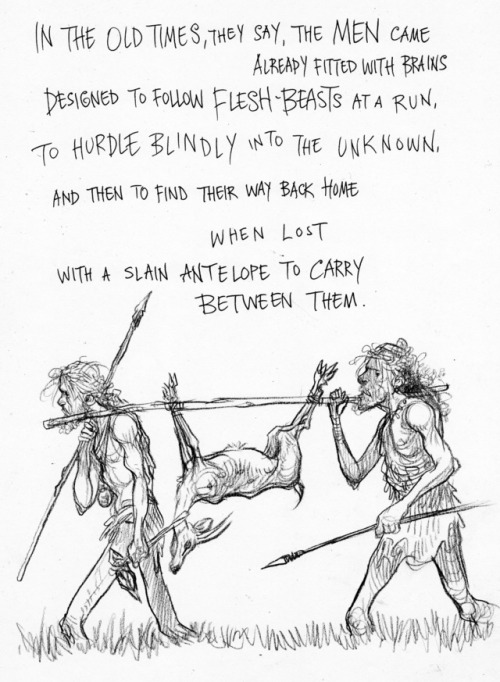 IN THE OLD TIMES, THEY SAY, THE MEN CAME
ALREADY FITTED WITH BRAINS
DESIGNED TO FOLLOW FLESH-BEASTS AT A RUN,
TO HURDLE BLINDLY INTO THE UNKNOWN,
AND THEN TO FIND THEIR WAY BACK HOME
WHEN LOST
WITH A SLAIN ANTELOPE TO CARRY
BETWEEN THEM.